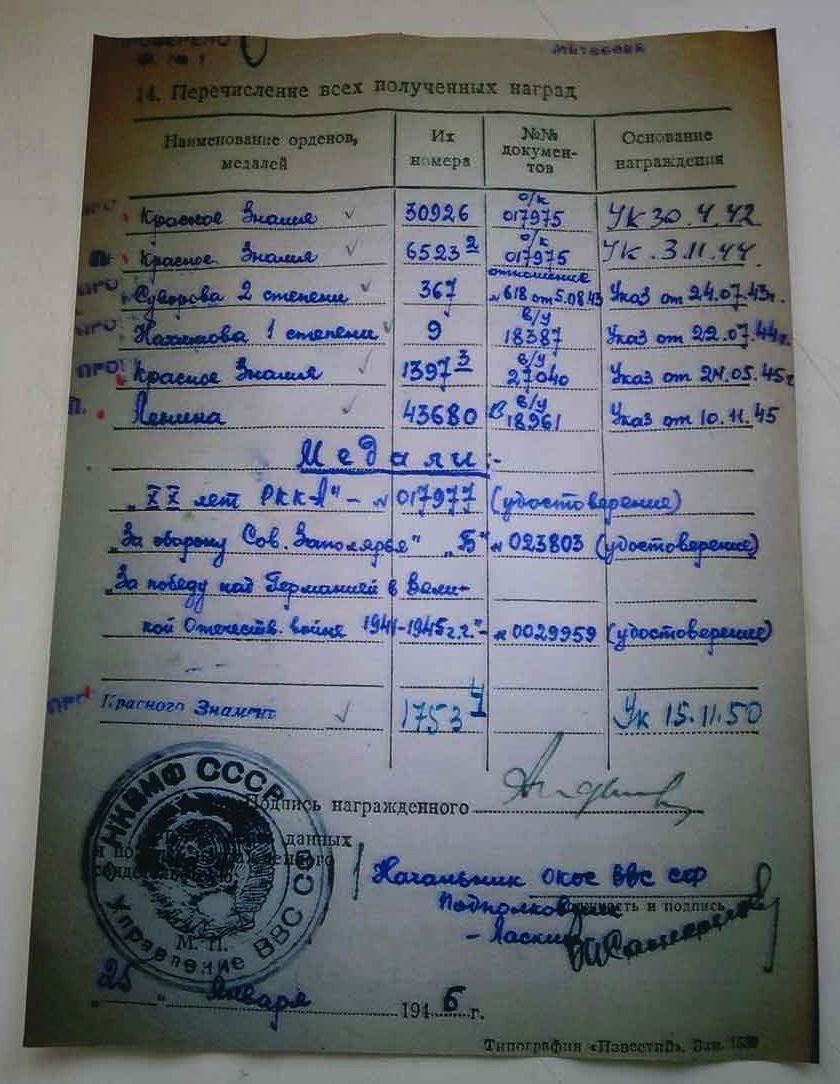 14. Перечисление всех полученных наград
Наименование орденов, медалей | Их номера | №№ документов | Основание награждения
Красное Знамя | 30926 | о/к 017975 | Ук 30.4.42
Красное Знамя | 6523 2 | о/к 017975 | Ук. 3.11.44.
Суворова 2 степени | 367 | отношение №618 от 5.08.43 | Указ от 24.07.43г.
Нахимова 1 степени | 9 | в/у 18387 | Указ от 22.07.44г.
Красное Знамя | 1397 3 | в/у 27040 | Указ от 24.05.45г
Ленина | 43680 | в/у 18961 | Указ от 10.11.45
Медали:-
„XX лет РККА" - № 017977 (удостоверение)
„За оборону Сов. Заполярья" „Б" № 023803 (удостоверение)
„За победу над Германией в Вели-
кой Отечеств. войне 1941-1945г.г."- № 0029959 (удостоверение)
Красного Знамени | 1753 4 | Ук 15.11.50
НКВМФ СССР
Управление ВВС СФ
Подпись награжденного
данных
Начальник ОКОС ВВС СФ
Подполковник
подпись
М. П.
„25 „ Января 1946 г.
Типография «Известий». Зак.